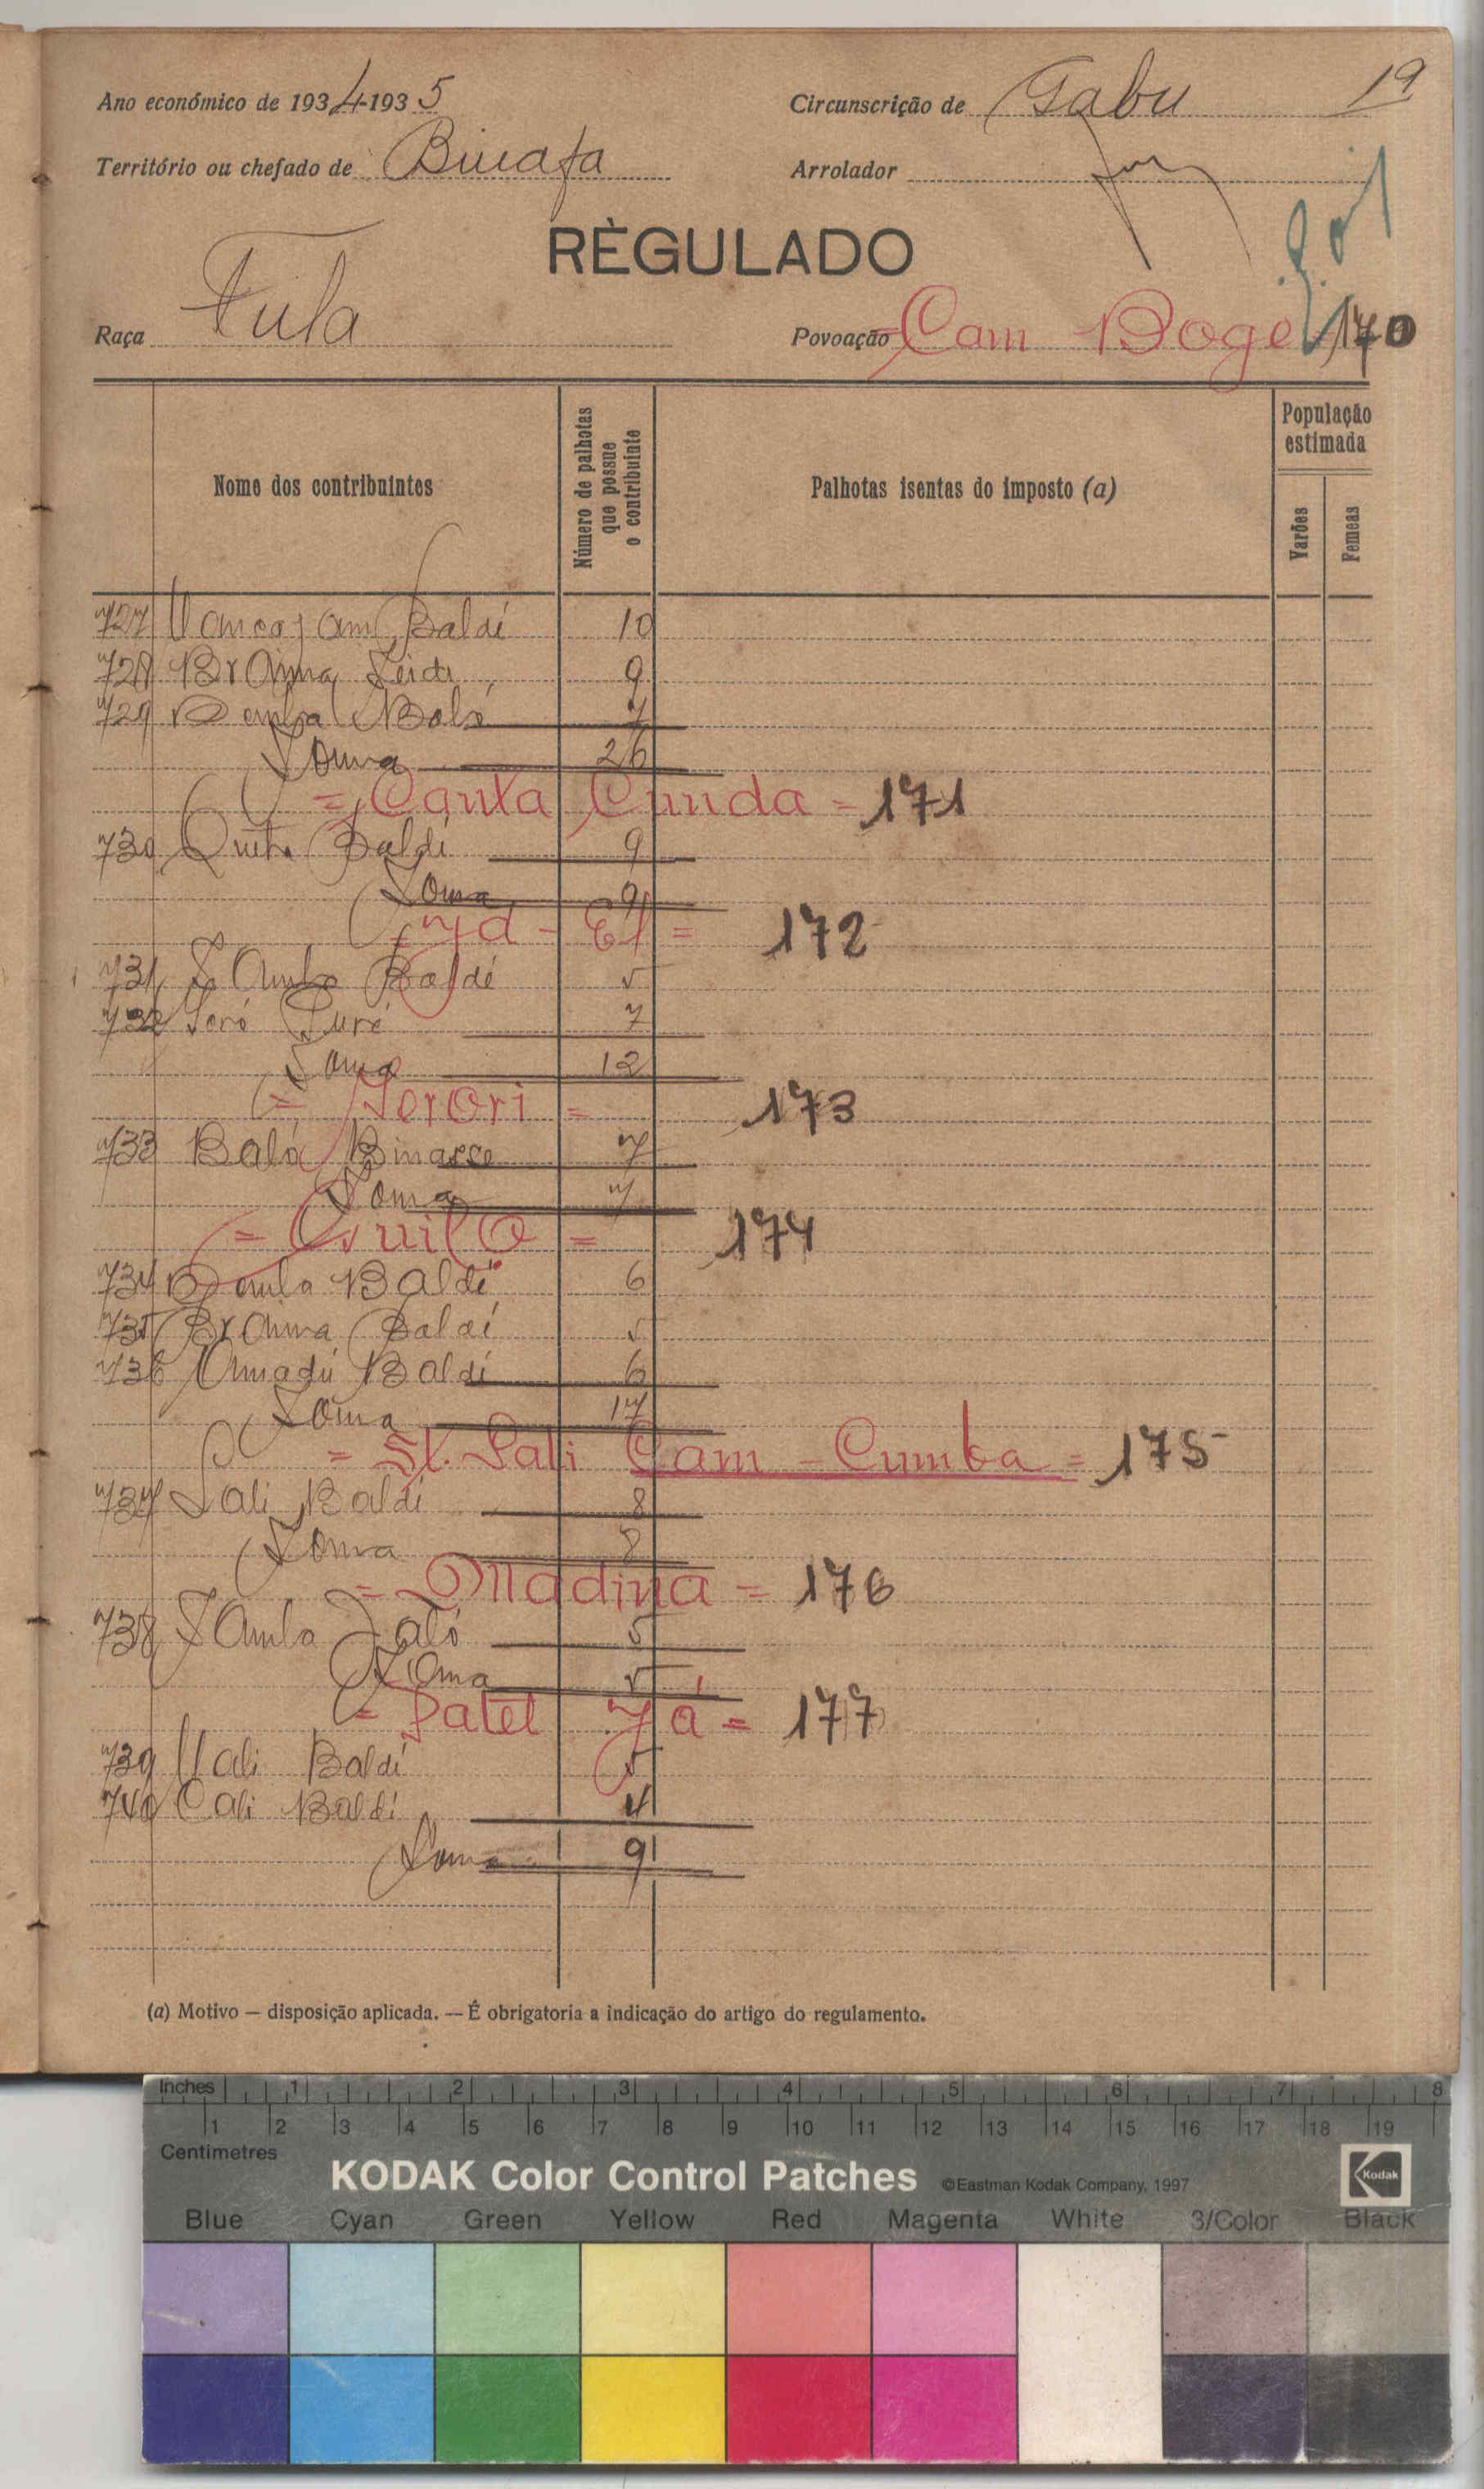 19
Ano económico de 1934-1935 Circunscrição de Gabu
Território ou chefado de Binafa Arrolador
RÈGULADO
Raça Fula Povoação = Cam Boge 170
Nome dos contribuintes
Número de palhotas que possue o contribuinte
Palhotas isentas do imposto (a)
População estimada
Varões
Femeas
727 Baldé 10
728 Braima Seidi 9
729 Demba Baló 7
Soma 26
= Canta Cunda = 171
730 Queta Baldé 9
Soma 9
= 172
731 Samba Baldé 5
732 Turé 7
Soma 12
= Sorori = 173
733 Baló Binasse 7
Soma 7
= = 174
734 Demba Baldé 6
735 Braima Baldé 5
736 Amadú Baldé 6
Soma 17
= St. Sali Cam - Cumba = 175
737 Sali Baldé 8
Soma 8
= Madina = 176
738 Samba Jaló 5
Soma 5
= Patel Já = 177
739 Uali Baldé 5
740 Cali Baldé 4
Soma 9
(a) Motivo — disposição aplicada. — É obrigatoria a indicação do artigo do regulamento.
Inches 1 2 3 4 5 6 7 8
1 2 3 4 5 6 7 8 9 10 11 12 13 14 15 16 17 18 19
Centimetres
KODAK Color Control Patches ©Eastman Kodak Company, 1997 Kodak
Blue Cyan Green Yellow Red Magenta White 3/Color Black